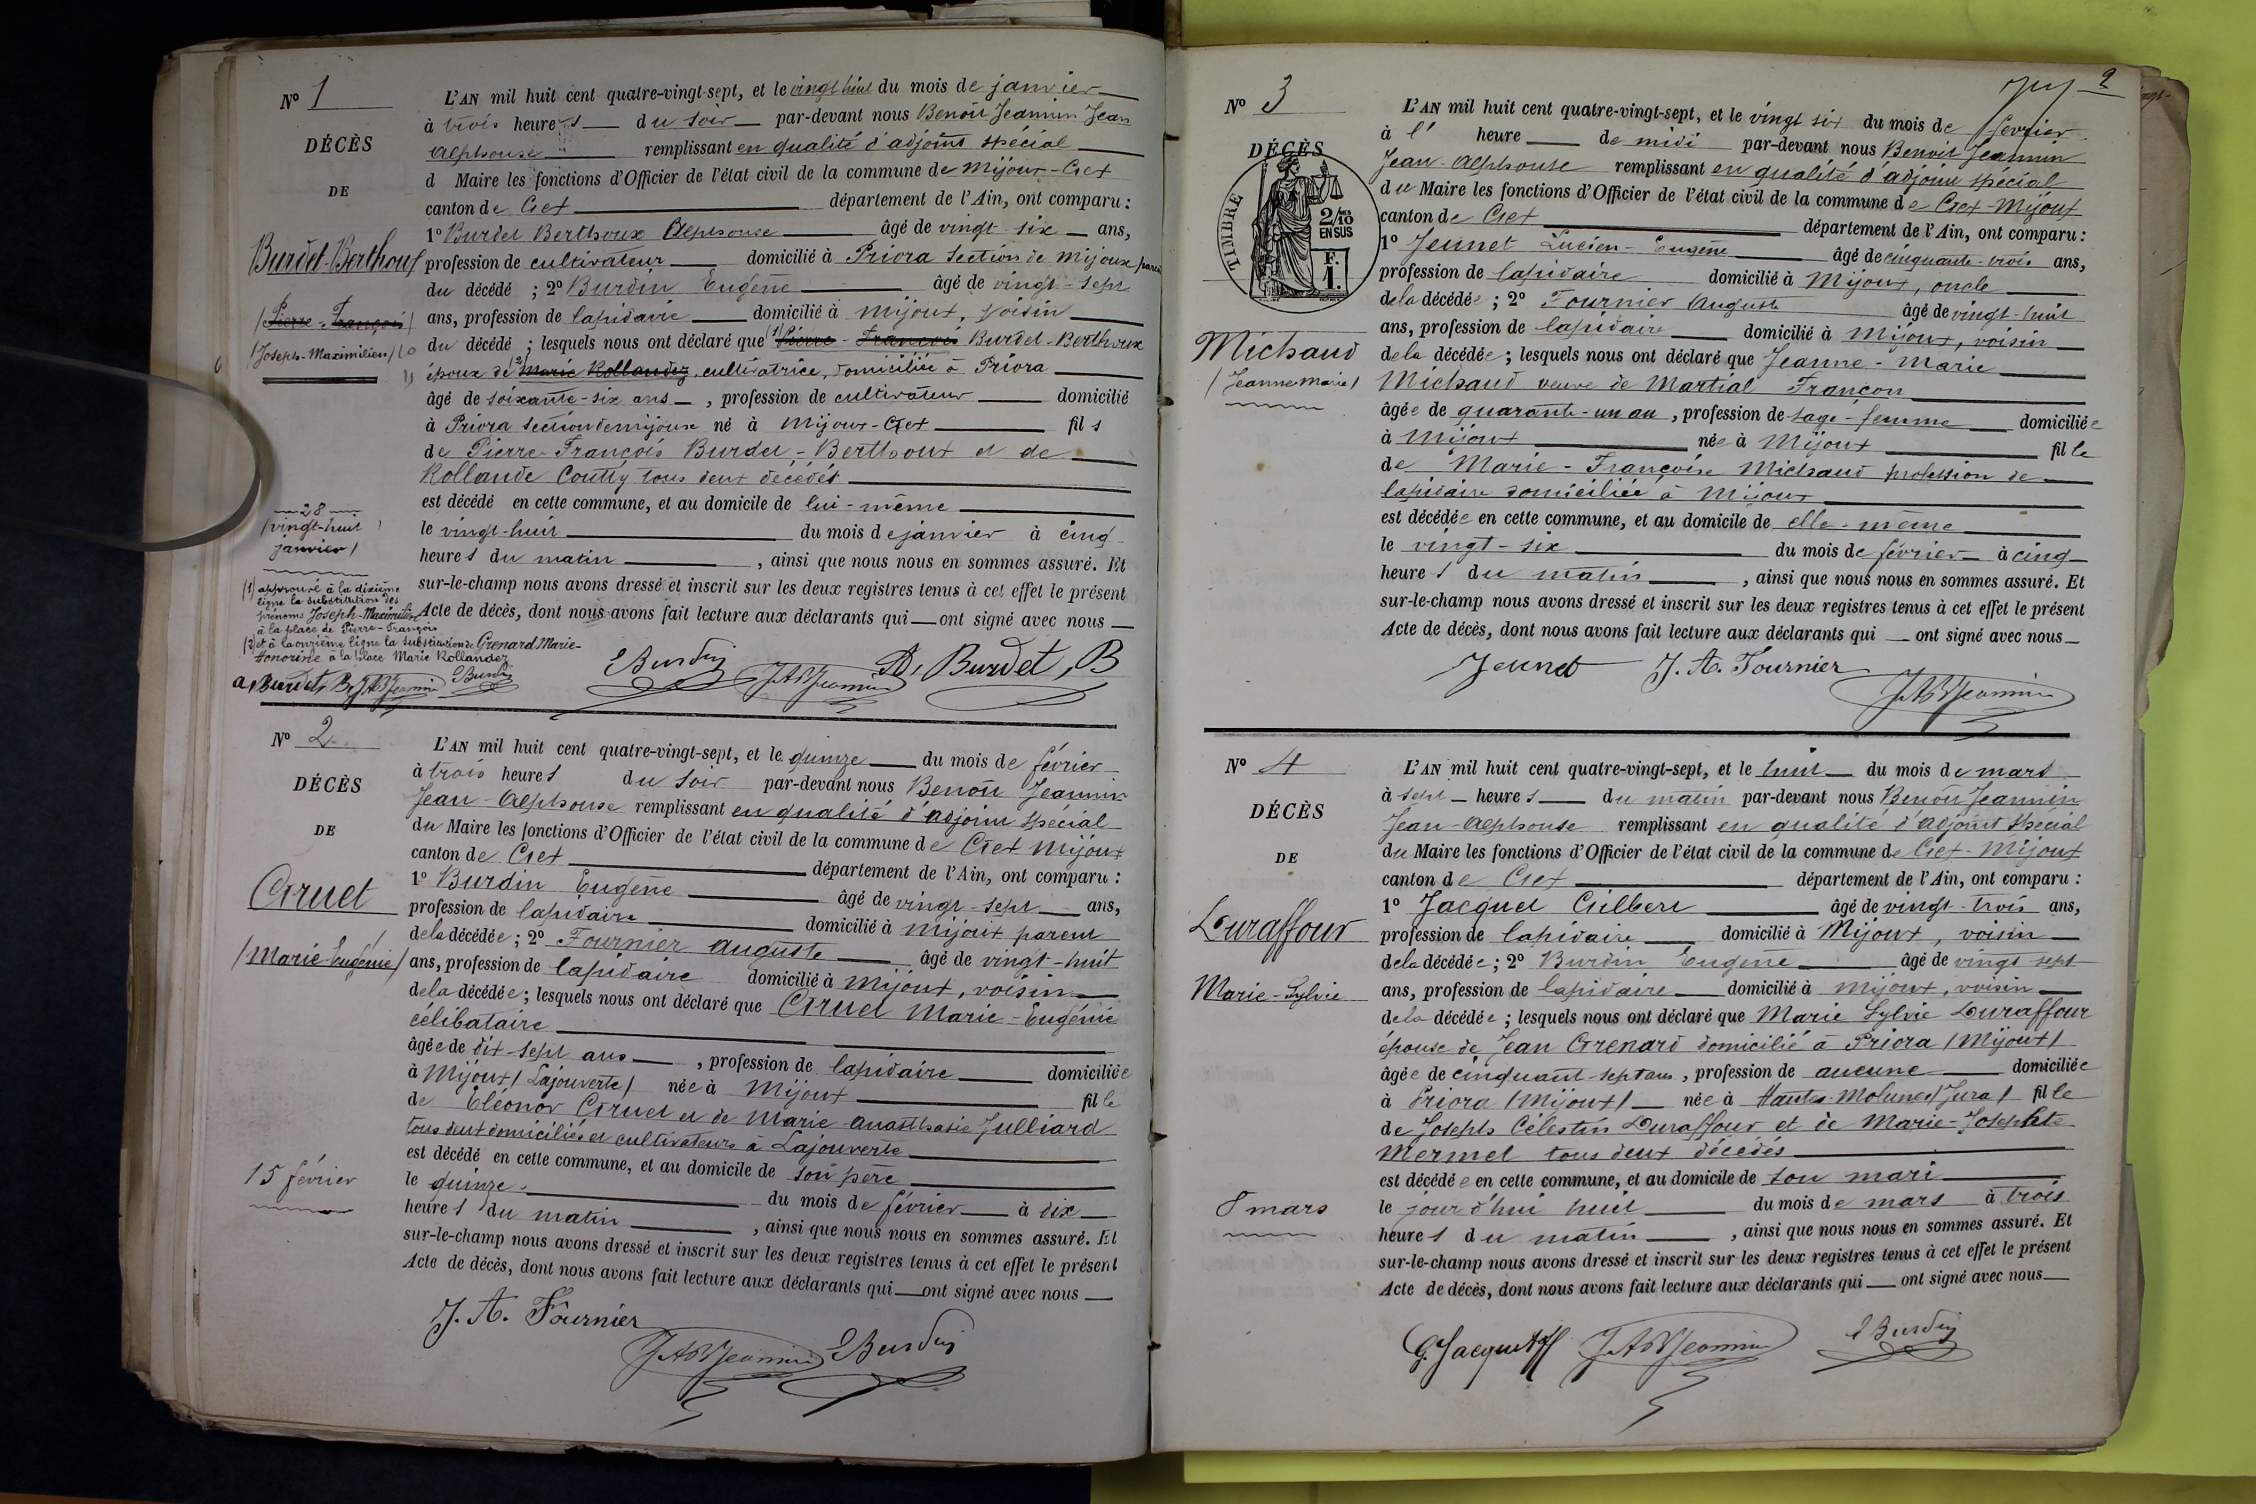 Nº 1
DÉCÈS
DE
Burdet-Berthoux
/Pierre-François/
/Joseph-Maximilien/
28
/vingt-huit
janvier/
(1) approuvé à la dixième
ligne la substitution des
prénoms Joseph-Maximilien
à la place de Pierre-François
(2) et à la onzième ligne la substitution de Grenard Marie-
Honorine à la place Marie Rollandez
a, Burdet, B JABJeannin EBurdin
L'AN mil huit cent quatre-vingt-sept, et le vingt huit du mois de janvier
à trois heures du soir par-devant nous Benoit Jeannin Jean
Alphonse remplissant en qualité d'adjoint spécial
d Maire les fonctions d'Officier de l'état civil de la commune de Mijoux-Gex
canton de Gex département de l'Ain, ont comparu :
1º Burdet Berthoux Alphonse âgé de vingt-six ans,
profession de cultivateur domicilié à Priora Section de Mijoux, parent
du décédé ; 2º Burdin Eugène âgé de vingt-sept
ans, profession de lapidaire domicilié à Mijoux, voisin
du décédé ; lesquels nous ont déclaré que (1) Pierre-François Burdet-Berthoux
époux de (2) Marie Rollandez, cultivatrice, domiciliée à Priora
âgé de soixante-six ans, profession de cultivateur domicilié
à Priora section de Mijoux né à Mijoux-Gex fils
de Pierre-François Burdet-Berthoux et de
Rollande Coutty tous deux décédés
est décédé en cette commune, et au domicile de lui-même
le vingt-huit du mois de janvier à cinq
heures du matin, ainsi que nous nous en sommes assuré. Et
sur-le-champ nous avons dressé et inscrit sur les deux registres tenus à cet effet le présent
Acte de décès, dont nous avons fait lecture aux déclarants qui ont signé avec nous
EBurdin JABJeannin A, Burdet, B
Nº 2
DÉCÈS
DE
Gruet
/Marie-Eugénie/
15 février
L'AN mil huit cent quatre-vingt-sept, et le quinze du mois de février
à trois heures du soir par-devant nous Benoit Jeannin
Jean-Alphonse remplissant en qualité d'adjoint spécial
du Maire les fonctions d'Officier de l'état civil de la commune de Gex Mijoux
canton de Gex département de l'Ain, ont comparu :
1º Burdin Eugène âgé de vingt-sept ans,
profession de lapidaire domicilié à Mijoux parent
de la décédée ; 2º Fournier Auguste âgé de vingt-huit
ans, profession de lapidaire domicilié à Mijoux, voisin
de la décédée ; lesquels nous ont déclaré que Gruet Marie-Eugénie
célibataire
âgée de dix-sept ans, profession de lapidaire domiciliée
à Mijoux /Lajouverte/ née à Mijoux fille
de Eléonor Gruet et de Marie Anasthasie Julliard
tous deux domiciliés et cultivateurs à Lajouverte
est décédé en cette commune, et au domicile de son père
le quinze du mois de février à dix
heures du matin, ainsi que nous nous en sommes assuré. Et
sur-le-champ nous avons dressé et inscrit sur les deux registres tenus à cet effet le présent
Acte de décès, dont nous avons fait lecture aux déclarants qui ont signé avec nous
J. A. Fournier
JABJeannin EBurdin
2
Nº 3
DÉCÈS
TIMBRE
2/10 MES
EN SUS
F.
1.
Michaud
/Jeanne Marie/
L'AN mil huit cent quatre-vingt-sept, et le vingt six du mois de février
à l' heure de midi par-devant nous Benoit Jeannin
Jean-Alphonse remplissant en qualité d'adjoint spécial
du Maire les fonctions d'Officier de l'état civil de la commune de Gex-Mijoux
canton de Gex département de l'Ain, ont comparu :
1º Jeunet Lucien-Eugène âgé de cinquante-trois ans,
profession de lapidaire domicilié à Mijoux, oncle
de la décédée ; 2º Fournier Auguste âgé de vingt-huit
ans, profession de lapidaire domicilié à Mijoux, voisin
de la décédée ; lesquels nous ont déclaré que Jeanne-Marie
Michaud veuve de Martial Françon
âgée de quarante-un an, profession de sage-femme domiciliée
à Mijoux née à Mijoux fille
de Marie-Françoise Michaud profession de
lapidaire domiciliée à Mijoux
est décédée en cette commune, et au domicile de elle-même
le vingt-six du mois de février à cinq
heures du matin, ainsi que nous nous en sommes assuré. Et
sur-le-champ nous avons dressé et inscrit sur les deux registres tenus à cet effet le présent
Acte de décès, dont nous avons fait lecture aux déclarants qui ont signé avec nous
Jeunet J. A. Fournier
JABJeannin
Nº 4
DÉCÈS
DE
Duraffour
Marie-Sylvie
8 mars
L'AN mil huit cent quatre-vingt-sept, et le huit du mois de mars
à sept heures du matin par-devant nous Benoit Jeannin
Jean-Alphonse remplissant en qualité d'adjoint spécial
du Maire les fonctions d'Officier de l'état civil de la commune de Gex-Mijoux
canton de Gex département de l'Ain, ont comparu :
1º Jacquet Gilbert âgé de vingt-trois ans,
profession de lapidaire domicilié à Mijoux, voisin
de la décédée ; 2º Burdin Eugène âgé de vingt sept
ans, profession de lapidaire domicilié à Mijoux, voisin
de la décédée ; lesquels nous ont déclaré que Marie Sylvie Duraffour
épouse de Jean Grenard domicilié à Priora /Mijoux/
âgée de cinquant-sept ans, profession de aucune domiciliée
à Priora /Mijoux/ née à Hautes-Molunes /Jura/ fille
de Joseph Célestin Duraffour et de Marie-Josephte
Mermet tous deux décédés
est décédée en cette commune, et au domicile de son mari
le jour d'hui huit du mois de mars à trois
heures du matin, ainsi que nous nous en sommes assuré. Et
sur-le-champ nous avons dressé et inscrit sur les deux registres tenus à cet effet le présent
Acte de décès, dont nous avons fait lecture aux déclarants qui ont signé avec nous
G. Jacquet JABJeannin EBurdin